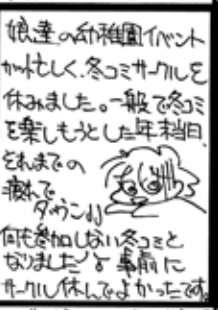 娘達の幼稚園イベント
が忙しく、冬コミサークルを
休みました。一般で冬コミ
を楽しもうとした年末当日、
それまでの
疲れで
ダウン
何も参加しない冬コミと
なりました 事前に
サークル休んでよかったです。